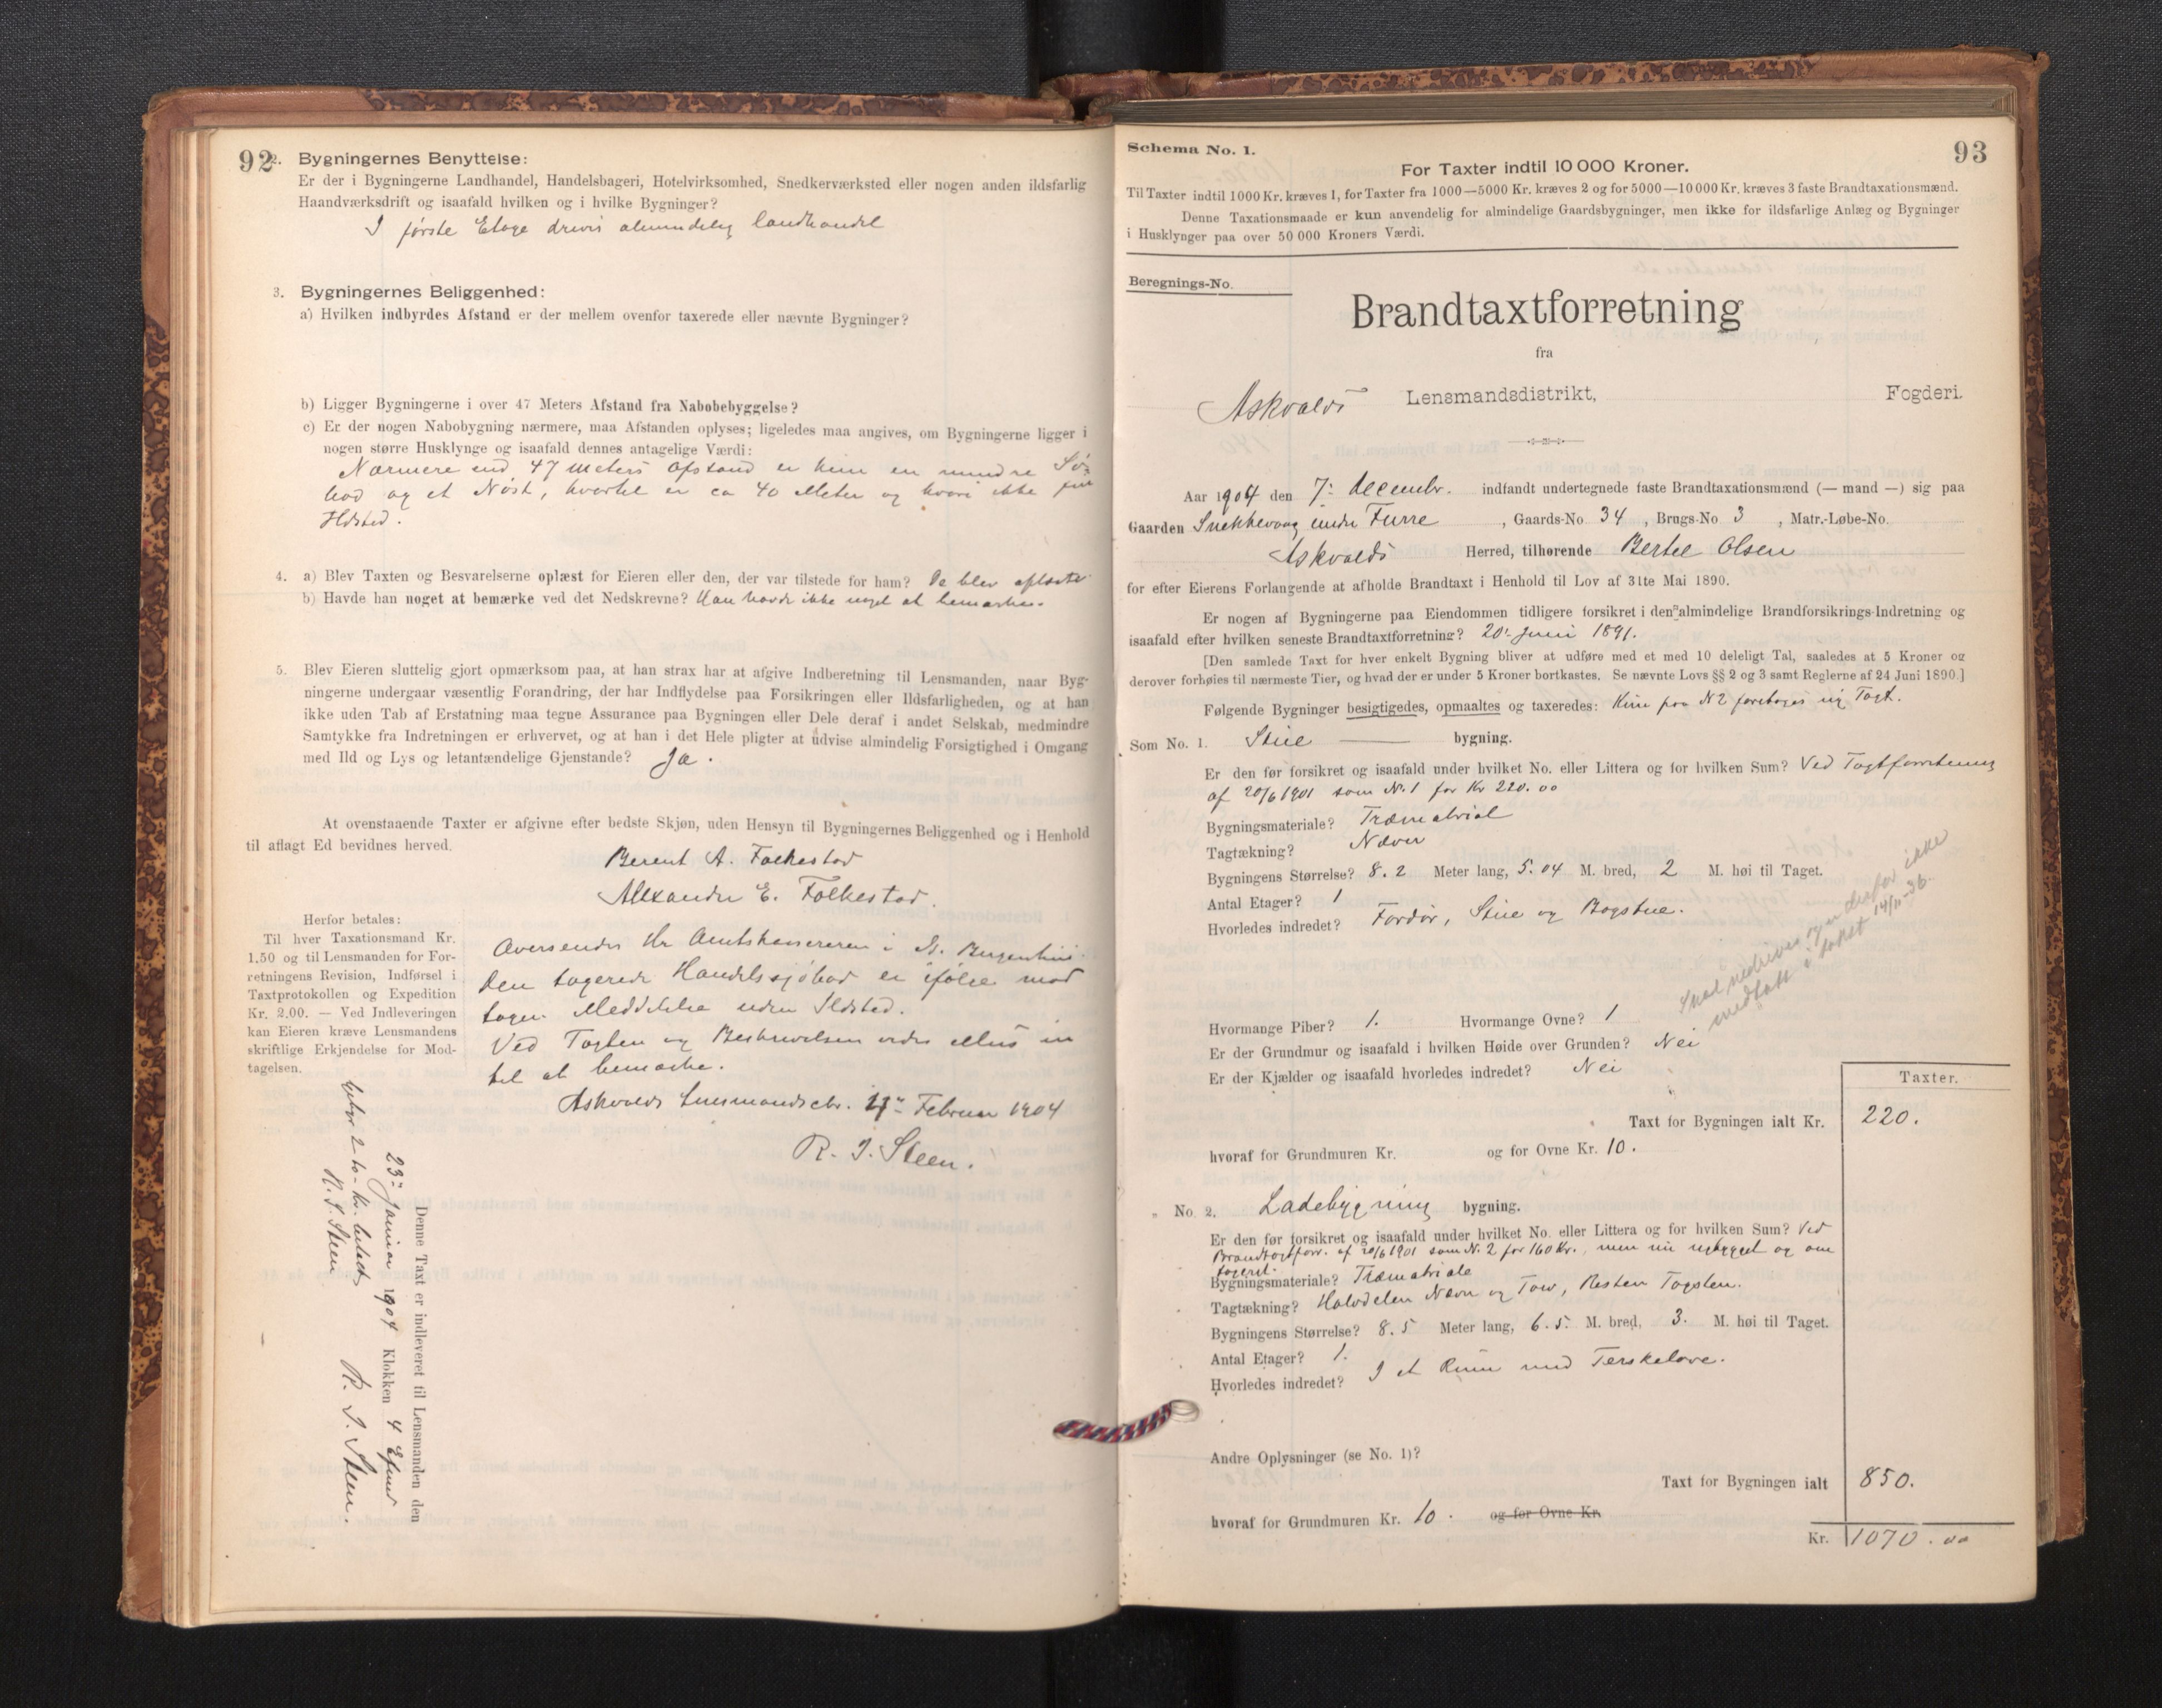 92
2. Bygningernes Benyttelse:
Er der i Bygningerne Landhandel, Handelsbageri, Hotelvirksomhed, Snedkerværksted eller nogen anden ildsfarlig
Haandværksdrift og isaafald hvilken og i hvilke Bygninger?
I første Etage drives almindelig landhandel
3. Bygningernes Beliggenhed:
a) Hvilken indbyrdes Afstand er der mellem ovenfor taxerede eller nævnte Bygninger?
b) Ligger Bygningerne i over 47 Meters Afstand fra Nabobebyggelse?
c) Er der nogen Nabobygning nærmere, maa Afstanden oplyses; ligeledes maa angives, om Bygningerne ligger i
nogen større Husklynge og isaafald dennes antagelige Værdi:
Nærmere end 47 Meters Afstand er kun en mindre Sø-
bod og et Nøst, hvortil er ca 40 Meter og hvori ikke
Ildsted.
4. a) Blev Taxten og Besvarelserne oplæst for Eieren eller den, der var tilstede for ham? De blev oplæste
b) Havde han noget at bemærke ved det Nedskrevne? Han havde ikke noget at bemærke.
5. Blev Eieren sluttelig gjort opmærksom paa, at han strax har at afgive Indberetning til Lensmanden, naar Byg-
ningerne undergaar væsentlig Forandring, der har Indflydelse paa Forsikringen eller Ildsfarligheden, og at han
ikke uden Tab af Erstatning maa tegne Assurance paa Bygningen eller Dele deraf i andet Selskab, medmindre
Samtykke fra Indretningen er erhvervet, og at han i det Hele pligter at udvise almindelig Forsigtighed i Omgang
med Ild og Lys og letantændelige Gjenstande? Ja.
At ovenstaaende Taxter er afgivne efter bedste Skjøn, uden Hensyn til Bygningernes Beliggenhed og i Henhold
til aflagt Ed bevidnes herved.
Berent A. Folkestad
Alexander E. Folkestad.
Herfor betales:
Til hver Taxationsmand Kr.
1.50 og til Lensmanden for For-
retningens Revision, Indførsel i
Taxtprotokollen og Expedition
Kr. 2.00. — Ved Indleveringen
kan Eieren kræve Lensmandens
skriftlige Erkjendelse for Mod-
tagelsen.
Oversendes Hr Amtskassereren i N. Bergenhus.
Den taxerede Handelssjøbod er ifølge mod
tagen Meddelelse uden Ildsted.
Ved Taxten og Beskrivelsen vides ellers in
tet at bemærke.
Askvolds Lensmandsctr. 11te Februar 1904
R. J. Steen.
Denne Taxt er indleveret til Lensmanden den
23de Januar 1904 Klokken 4 Efmd
R. J. Steen.
2 to Kr. betalt
R. J. Steen
93
Schema No. 1.
For Taxter indtil 10 000 Kroner.
Til Taxter indtil 1000 Kr. kræves 1, for Taxter fra 1000—5000 Kr. kræves 2 og for 5000—10 000 Kr. kræves 3 faste Brandtaxationsmænd.
Denne Taxationsmaade er kun anvendelig for almindelige Gaardsbygninger, men ikke for ildsfarlige Anlæg og Bygninger
i Husklynger paa over 50 000 Kroners Værdi.
Beregnings-No.
Brandtaxtforretning
fra
Askvolds Lensmandsdistrikt, Fogderi.
Aar 1904 den 7. Decembr. indfandt undertegnede faste Brandtaxationsmænd (— mand —) sig paa
Gaarden Snekkevaag under Furre, Gaards-No. 34, Brugs-No. 3, Matr.-Løbe-No.
Askvolds Herred, tilhørende Bertel Olsen
for efter Eierens Forlangende at afholde Brandtaxt i Henhold til Lov af 31te Mai 1890.
Er nogen af Bygningerne paa Eiendommen tidligere forsikret i den almindelige Brandforsikrings-Indretning og
isaafald efter hvilken seneste Brandtaxtforretning? 20. Juni 1891.
[Den samlede Taxt for hver enkelt Bygning bliver at udføre med et med 10 deleligt Tal, saaledes at 5 Kroner og
derover forhøies til nærmeste Tier, og hvad der er under 5 Kroner bortkastes. Se nævnte Lovs §§ 2 og 3 samt Reglerne af 24 Juni 1890.]
Følgende Bygninger besigtigedes, opmaaltes og taxeredes: Kun paa N 2 foretages ny Taxt.
Som No. 1. Stue bygning.
Er den før forsikret og isaafald under hvilket No. eller Littera og for hvilken Sum? Ved Taxtforretning
af 20/6 1901 som N. 1 for Kr 220.00
Bygningsmateriale? Træmatrial
Tagtækning? Næver
Bygningens Størrelse? 8.2 Meter lang, 5.04 M. bred, 2 M. høi til Taget.
Antal Etager? 1
Hvorledes indredet? Fordør, Stue og Bagstue.
Hvormange Piber? 1. Hvormange Ovne? 1
ikke
medtatt i 14/11-36.
Er der Grundmur og isaafald i hvilken Høide over Grunden? Nei
Er der Kjælder og isaafald hvorledes indredet? Nei
Taxter.
Taxt for Bygningen ialt Kr. 220.
hvoraf for Grundmuren Kr. og for Ovne Kr. 10.
„ No. 2. Ladebygning bygning.
Er den før forsikret og isaafald under hvilket No. eller Littera og for hvilken Sum? Ved
Brandtaxtforr. af 20/6 1901 som N. 2 for 160 Kr., men nu nybygget og om
taxeret.
Bygningsmateriale? Træmatriale
Tagtækning? Halvdelen Næver og Torv, Resten Tagsten.
Bygningens Størrelse? 8.5 Meter lang, 6.5 M. bred, 3. M. høi til Taget.
Antal Etager? 1.
Hvorledes indredet? I et Rum med Terskelove.
Andre Oplysninger (se No. 1)?
Taxt for Bygningen ialt 850.
hvoraf for Grundmuren Kr. 10. og for Ovne Kr.
Kr. 1070.00